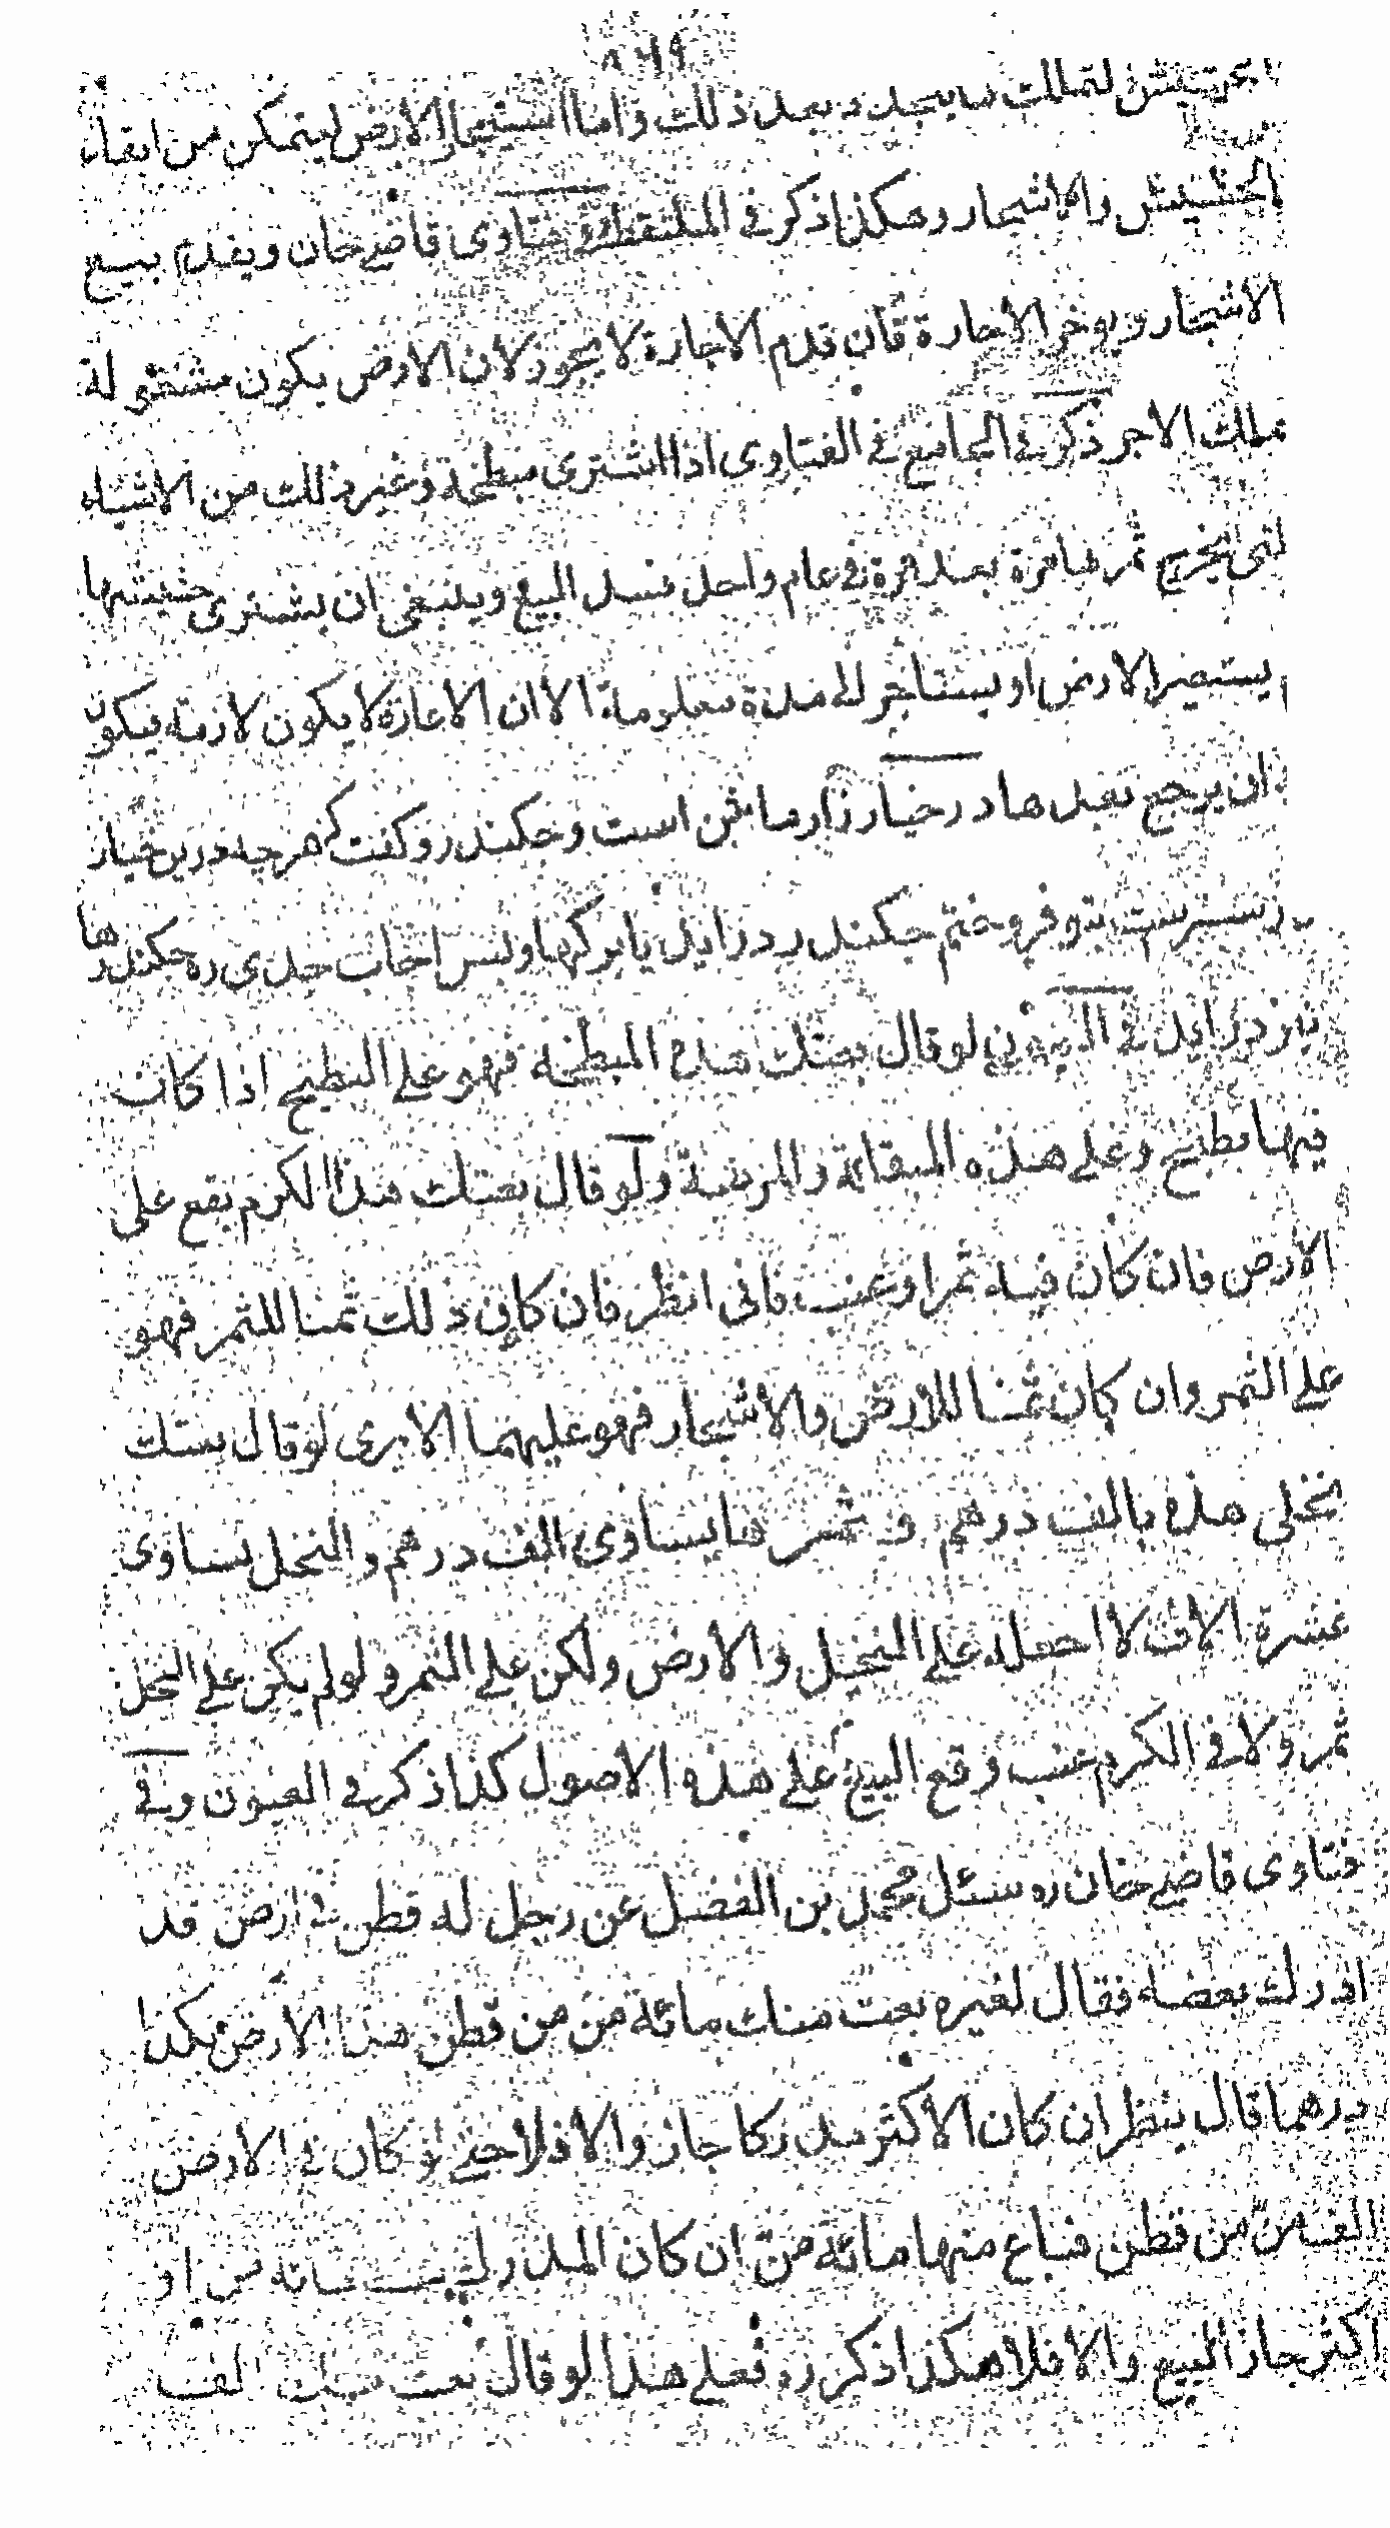 لتملك ما يحدد بعد ذلك واما استيجار الارض ليتمكن من ابقاء
الحشيش والاشجار وهكذا ذكر في الملتقط وفتاوى قاضي خان ويقدم بيع
الاشجار ويوخر الاجارة فان قدم الاجارة لا يجوز لان الارض يكون مشغولة
بملك الاجر ذكر في الجامع في الفتاوى اذا اشترى مبطخة وغير ذلك من الاشياء
لتي يخرج ثمرها مرة بعد مرة في عام واحد فسد البيع وينبغي ان يشترى حشيشها
يستعير الارض او يستاجر له مدة معلومة الا ان الاعارة لا يكون لازمة فيكون
ان يرجع بعدها در خيار زار ما من است وحكندر وكفت كه هرچه درين خيار
بتو فروختم حكندر در زايد يا بركها ولس اجاب حدى ره حكندرها
نيز در زايد في لو قال بعتك هذه المبطخة فهو على البطيخ اذا كان
فيها بطيخ وعلى هذه المقاثة والمزرعة ولو قال بعتك هذا الكرم يقع على
الارض فان كان فيه ثمرا وعنب فاني انظر فان كان ذلك ثمنا للثمر فهو
على الثمر وان كان ثمنا للارض والاشجار فهو عليهما الا يرى لو قال بعتك
نخلي هذه بالف درهم و ثمرها يساوى الف درهم والنخل يساوى
عشرة الاف لا اجعله على النخيل والارض ولكن على الثمر ولو لم يكن على النخل
ثمر ولا في الكرم عنب وقع البيع على هذه الاصول كذا ذكر في العيون وفي
فتاوى قاضي خان ره سئل محمد بن الفضل عن رجل له قطن في ارض قد
ادرك بعضه فقال لغيره بعت منك مائة من من قطن هذا الارض بكذا
درهما قال ينظر ان كان الاكثر مدركا جاز والا فلا حتى لو كان في الارض
الف من من قطن فباع منها مائة من ان كان المدرك مائة من او
اكثر جاز البيع والا فلا هكذا ذكر ره فعلى هذا لو قال بعت منك الف